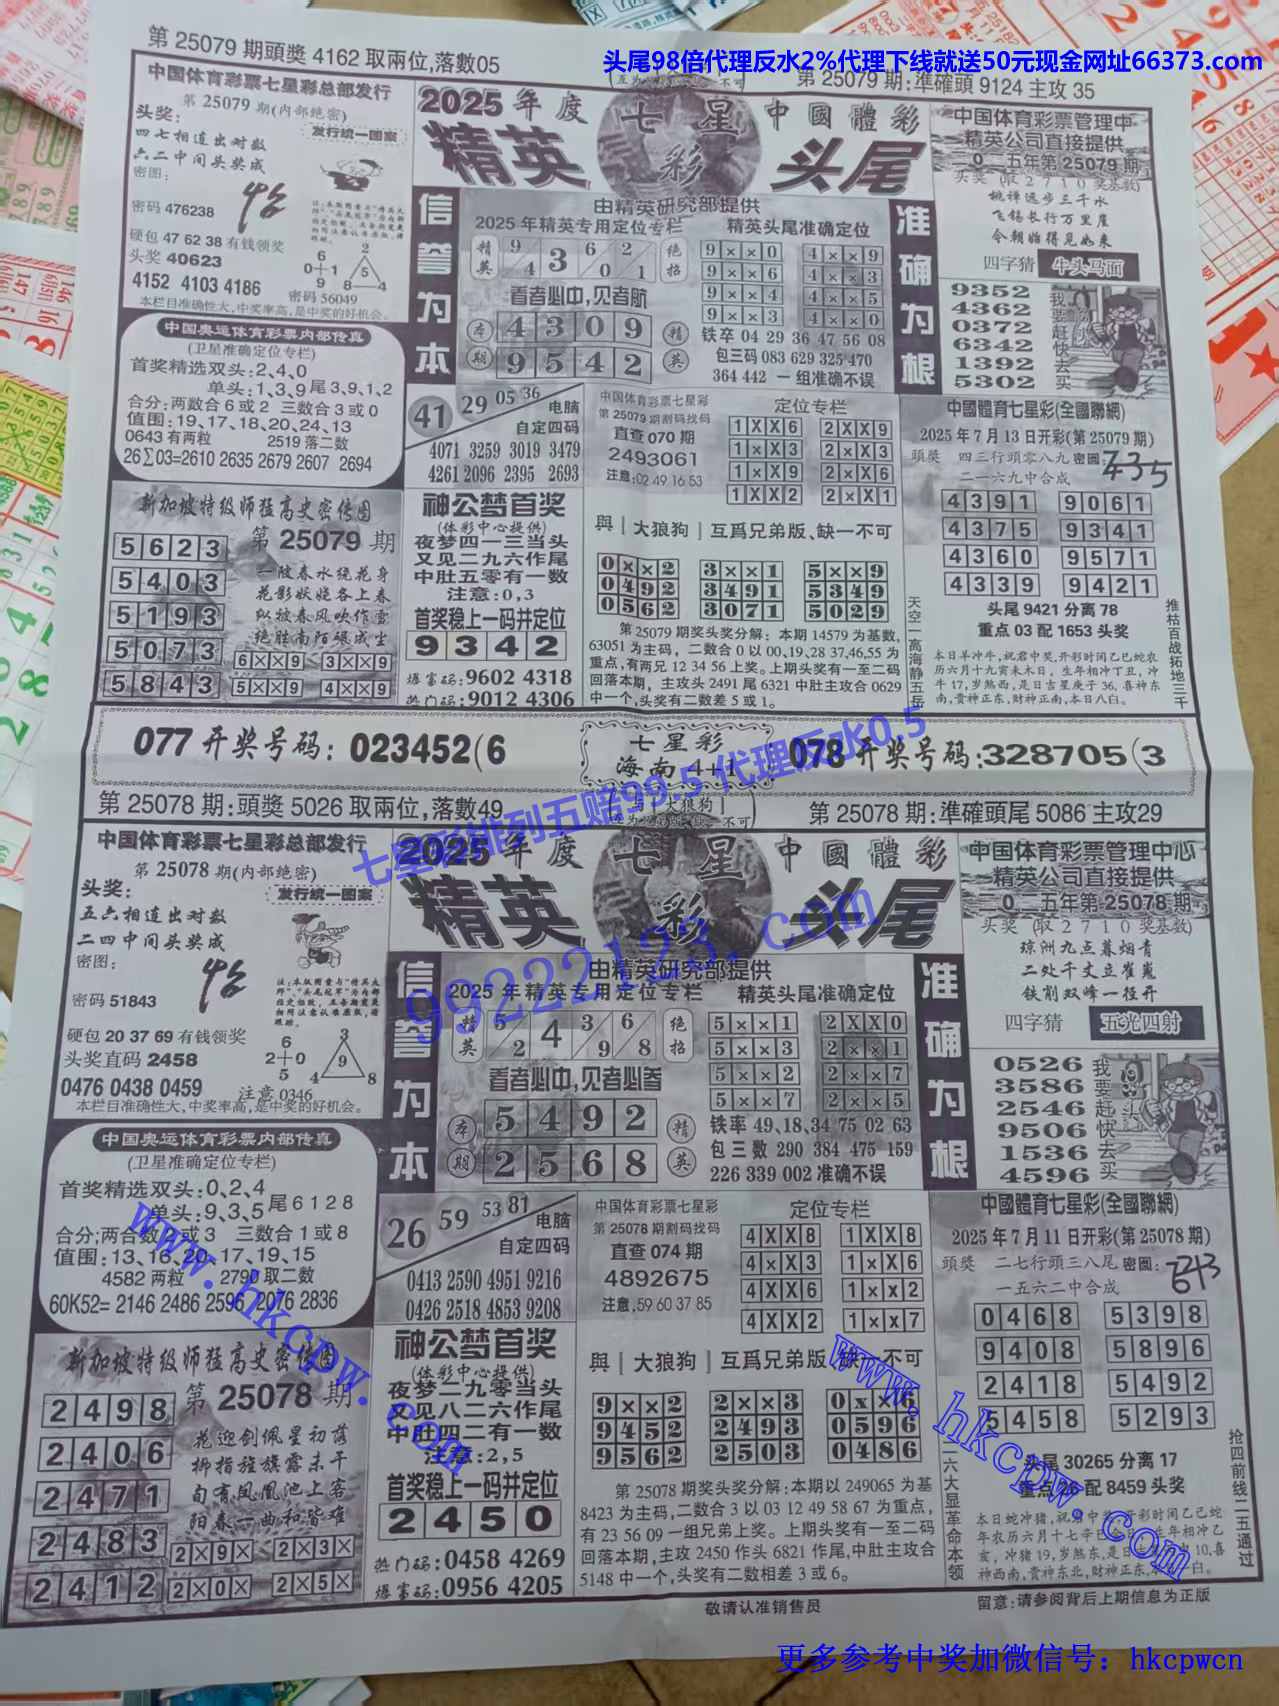 第 25079 期頭獎 4162 取兩位,落數05
头尾98倍代理反水2%代理下线就送50元现金网址66373.com
第 25079 期:準確頭 9124 主攻 35
中国体育彩票七星彩总部发行
第 25079 期(内部绝密)
头奖:
发行统一图案
四七相连出对数
六二中间头奖成
密图:
密码 476238
硬包 47 62 38 有钱领奖
头奖 40623
4152 4103 4186
密码 56049
本栏目准确性大,中奖率高,是中奖的好机会。
2025 年度 七星彩 中國體彩
精英 头尾
信誉为本
准确为根
由精英研究部提供
2025 年精英专用定位专栏
精英头尾准确定位
精英
9 4 3 6 0 2 1
绝招
看者必中,见者航
本期
4 3 0 9
9 5 4 2
精英
9 × × 0 4 × × 9
9 × × 6 4 × × 3
9 × × 4 4 × × 5
9 × × 3 4 × × 0
铁卒 04 29 36 47 56 08
包三码 083 629 325 470
364 442 一组准确不误
中国体育彩票管理中
精英公司直接提供
0 五年第 25079 期
头奖 (取 2 7 1 0 奖基数)
桃禅远步三千水
飞锡长行万里崖
今朝始得见如来
四字猜 牛头马面
9352
4362
0372
6342
1392
5302
我要赶快去买
中国奥运体育彩票内部传真
(卫星准确定位专栏)
首奖精选双头:2、4、0
单头:1、3、9 尾 3、9、1、2
合分:两数合 6 或 2 三数合 3 或 0
值围:19、17、18、20、24、13
0643 有两粒 2519 落二数
26∑03=2610 2635 2679 2607 2694
41 29 05 36
电脑
自定四码
4071 3259 3019 3479
4261 2096 2395 2693
中国体育彩票七星彩
第 25079 期割码找码
直查 070 期
2493061
注意:02 49 16 53
定位专栏
1 X X 6 2 X X 9
1 × X 4 2 × X 3
1 × X 9 2 × X 6
1 X X 2 2 × X 1
中國體育七星彩(全國聯網)
2025 年 7 月 13 日开彩(第 25079 期)
頭獎 四三行頭零八九 密圖:
二一六九中合成
4391 9061
4375 9341
4360 9571
4339 9421
头尾 9421 分离 78
重点 03 配 1653 头奖
新加坡特级师猛高史密传图
第 25079 期
5623
5403
5193
5073
5843
一陂春水绕花身
花影妖娆各上春
纵被春风吹作雪
绝胜南陌碾成尘
6××9 3××9
5××9 4××9
神公梦首奖
(体彩中心提供)
夜梦四一三当头
又见二九六作尾
中肚五零有一数
注意:0,3
首奖稳上一码并定位
9 3 4 2
爆富码:9602 4318
热门码:9012 4306
與 | 大狼狗 | 互爲兄弟版、缺一不可
0××2 3××1 5××9
0492 3491 5349
0562 3071 5029
第 25079 期奖头奖分解:本期 14579 为基数,
63051 为主码,二数合 0 以 00、19、28 37、46、55 为
重点,有两兄 12 34 56 上奖。上期头奖有一至二码
回落本期,主攻头 2491 尾 6321 中肚主攻合 0629
中一个,头奖有二数差 5 或 1。
天空一高海静五岳
推枯百战拓地三千
本日羊冲牛,祝君中奖,开彩时间乙巳蛇农
历六月十九寅未木日,生年相冲丁丑,冲
牛 17,岁煞西,是日吉星庚子 36,喜神东
南,贵神正东,财神正南,本日八白。
077 开奖号码:023452(6
七星彩
海南 4+1
078 开奖号码:328705(3
第 25078 期:頭獎 5026 取兩位,落數49
第 25078 期:準確頭尾 5086 主攻29
七星彩排列五赔99.5 代理反水0.5
中国体育彩票七星彩总部发行
第 25078 期(内部绝密)
头奖:
发行统一图案
五六相连出对数
二四中间头奖成
密图:
密码 51843
硬包 20 37 69 有钱领奖
头奖直码 2458
0476 0438 0459
注意 0346
本栏目准确性大,中奖率高,是中奖的好机会。
2025 年度 七星彩 中國體彩
精英 头尾
99222123.com
信誉为本
准确为根
由精英研究部提供
2025 年精英专用定位专栏
精英头尾准确定位
精英
5 2 4 3 9 6 8
绝招
看者必中,见者必参
本期
5 4 9 2
2 5 6 8
精英
5 × × 1 2 X X 0
5 × × 3 2 × × 1
5 × × 2 2 × × 7
5 × × 7 2 × × 5
铁率 49、18、34 75 02 63
包三数 290 384 475 159
226 339 002 准确不误
中国体育彩票管理中心
精英公司直接提供
0 五年第 25078 期
头奖 (取 2 7 1 0 奖基数)
琼洲九点暮烟青
二处千丈立崔嵬
铁削双峰一径开
四字猜 五光四射
0526
3586
2546
9506
1536
4596
我要赶快去买
中国奥运体育彩票内部传真
(卫星准确定位专栏)
首奖精选双头:0、2、4
单头:9、3、5 尾 6 1 2 8
合分;两合数 2 或 3 三数合 1 或 8
值围:13、16、20、17、19、15
4582 两粒 2790 取二数
60K52= 2146 2486 2596 2076 2836
www.hkcpw.com
26 59 53 81
电脑
自定四码
0413 2590 4951 9216
0426 2518 4853 9208
中国体育彩票七星彩
第 25078 期割码找码
直查 074 期
4892675
注意,59 60 37 85
定位专栏
4 X X 8 1 X X 8
4 × X 3 1 × X 6
4 X X 6 1 × x 2
4 X X 2 1 × x 7
中國體育七星彩(全國聯網)
2025 年 7 月 11 日开彩(第 25078 期)
頭獎 二七行頭三八尾 密圖:
一五六二中合成
0468 5398
9408 5896
2418 5492
5458 5293
头尾 30265 分离 17
重点 26 配 8459 头奖
www.hkcpw.com
新加坡特级师猛高史密传图
第 25078 期
2498
2406
2471
2483
2412
花迎剑佩星初落
柳指旌旗露未干
旬有凤凰池上客
阳春一曲和皆难
2×9× 2×3×
2×0× 2×5×
神公梦首奖
(体彩中心提供)
夜梦一九零当头
又见八二六作尾
中肚四二有一数
注意:2,5
首奖稳上一码并定位
2 4 5 0
热门码:0458 4269
爆富码:0956 4205
與 | 大狼狗 | 互爲兄弟版、缺一不可
9××2 2××3 0xx6
9452 2493 0596
9562 2503 0486
第 25078 期奖头奖分解:本期以 249065 为基
8423 为主码,二数合 3 以 03 12 49 58 67 为重点,
有 23 56 09 一组兄弟上奖。上期头奖有一至二码
回落本期,主攻 2450 作头 6821 作尾,中肚主攻合
5148 中一个,头奖有二数相差 3 或 6。
二六大显革命本领
抢四前线二五通过
敬请认准销售员
留意:请参阅背后上期信息为正版
更多参考中奖加微信号: hkcpwcn